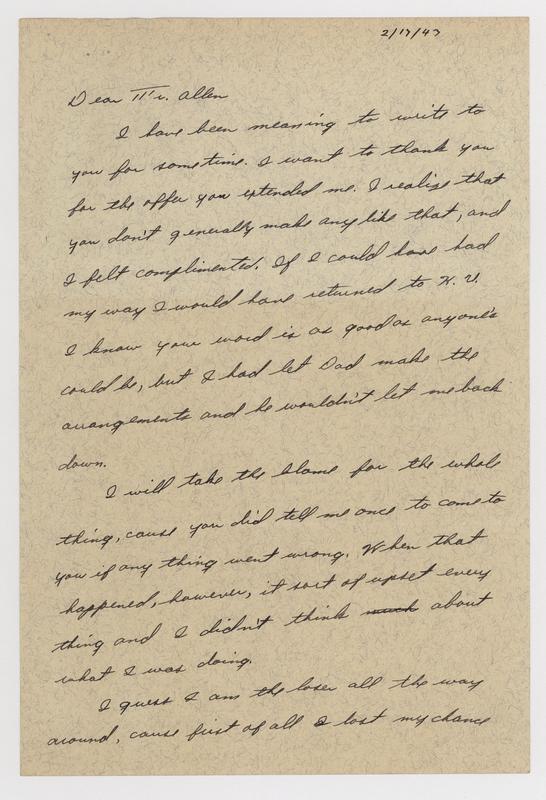 2/17/47
Dear Mr. Allen
I have been meaning to write to
you for sometime. I want to thank you
for the offer you extended me. I realize that
you don't generally make any like that, and
I felt complimented. If I could have had
my way I would have returned to K. U.
I know your word is as good as anyone's
could be, but I had let Dad make the
arrangements and he wouldn't let me back
down.
I will take the blame for the whole
thing, cause you did tell me once to come to
you if any thing went wrong. When that
happened, however, it sort of upset every
thing and I didn't think much about
what I was doing.
I guess I am the loser all the way
around, cause first of all I lost my chance